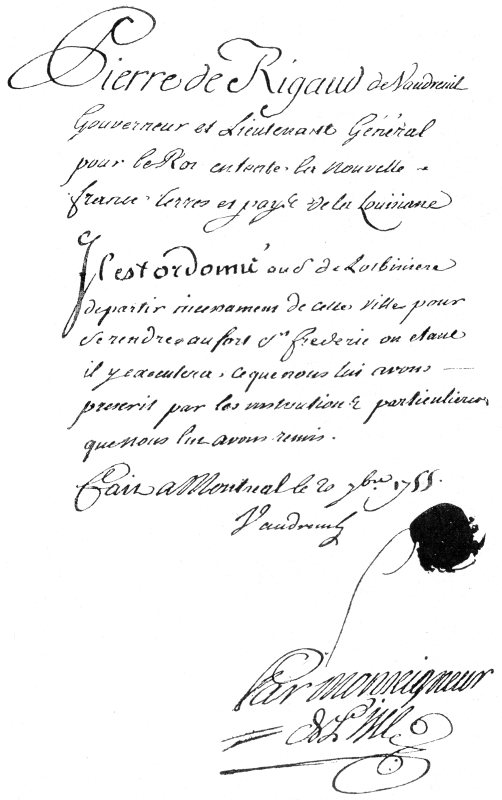 Pierre de Rigaud de Vaudreuil
Gouverneur et Lieutenant Général
pour le Roi en toute la nouvelle
france terres et pays de la Louisiane
Il est ordonné au Sr de Lotbiniere
de partir incessament de cette ville pour
se rendre au fort St frederic ou etant
il y executera ce que nous lui avons
prescrit par les instructions particulieres
que nous lui avons remis.
Fait a Montreal le 20 7bre 1755.
Vaudreuil
Par monseigneur